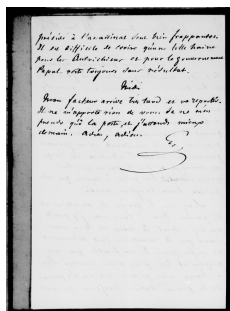 présidé à l'assassinat sont bien frappantes.
Il est difficile de croire qu'une telle haine
pour les Autrichiens et pour le gouvernement
Papal reste toujours sans résultat.
Midi
Mon facteur arrive très tard et va repartir.
Il ne m'apporte rien de vous. Je ne m'en
prends qu'à la poste, et j'attends mieux
demain. Adieu, adieu.